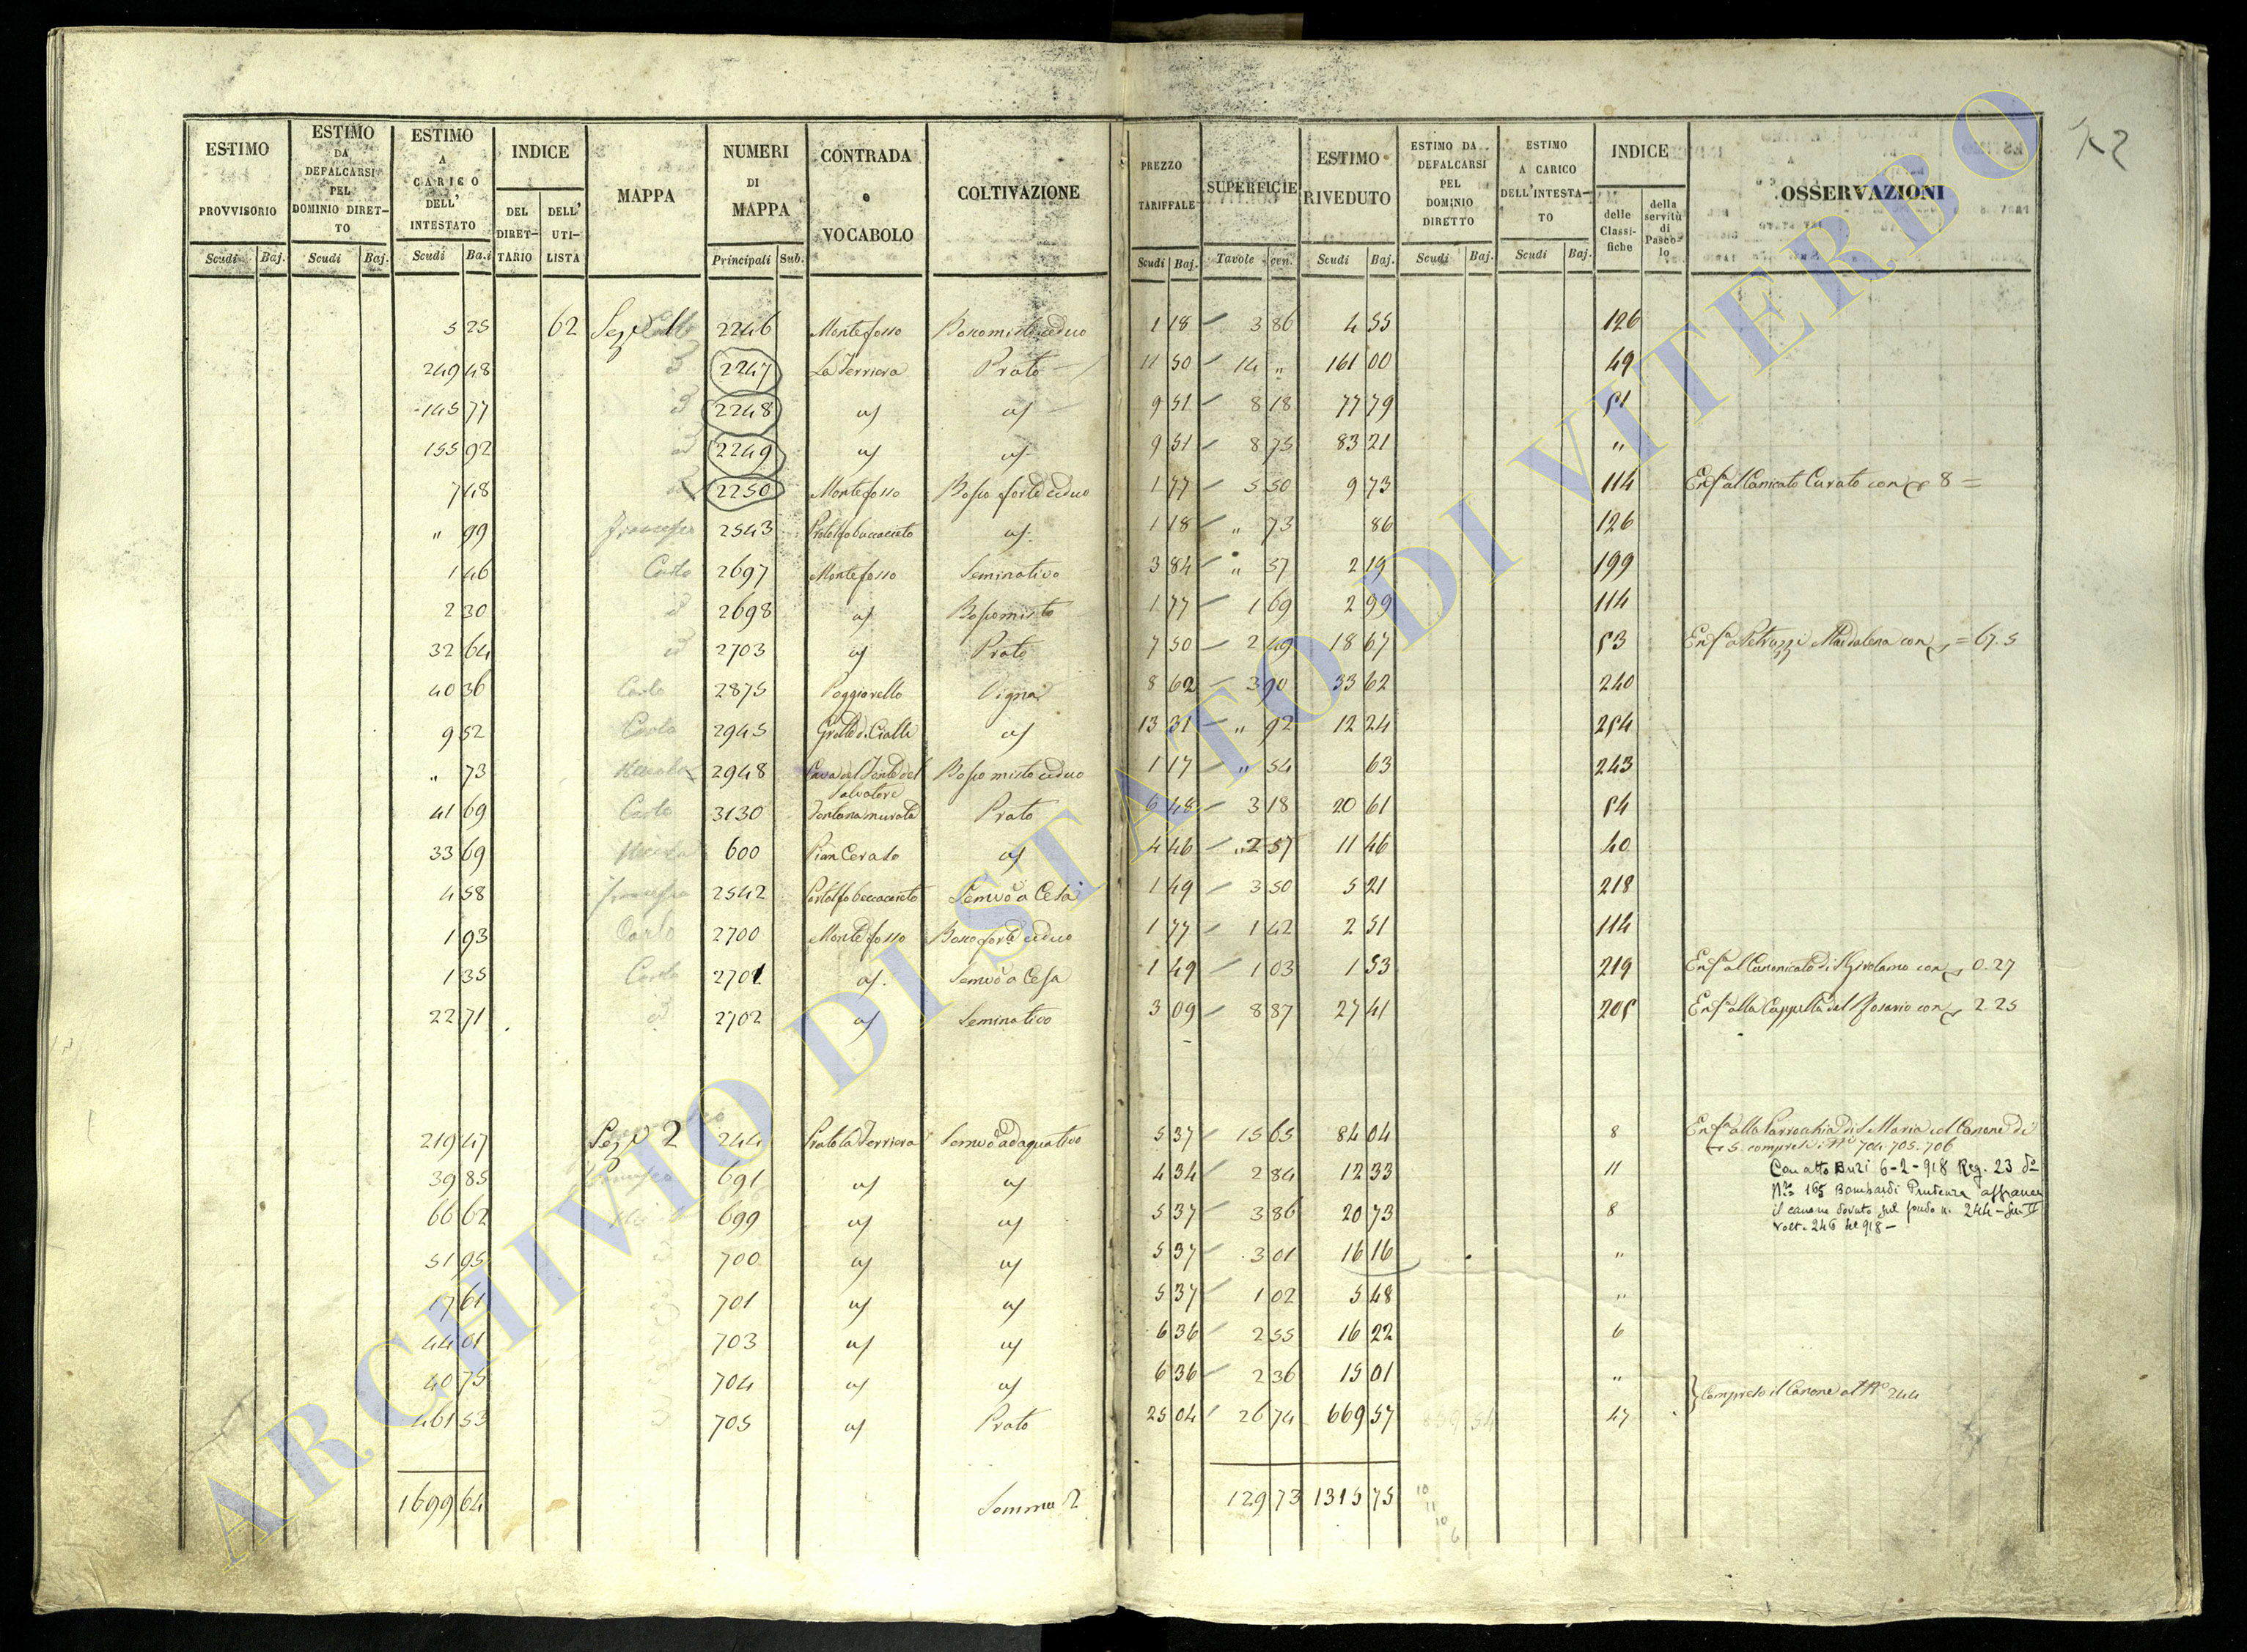 72
ESTIMO PROVVISORIO Scudi Baj.
ESTIMO DA DEFALCARSI PEL DOMINIO DIRET-TO Scudi Baj.
ESTIMO A CARICO DELL' INTESTATO Scudi Ba.i
INDICE DEL DIRET-TARIO DELL' UTI-LISTA
MAPPA
NUMERI DI MAPPA Principali Sub.
CONTRADA o VOCABOLO
COLTIVAZIONE
PREZZO TARIFFALE Scudi Baj.
SUPERFICIE Tavole cen.
ESTIMO RIVEDUTO Scudi Baj.
ESTIMO DA DEFALCARSI PEL DOMINIO DIRETTO Scudi Baj.
ESTIMO A CARICO DELL'INTESTA-TO Scudi Baj.
INDICE delle Classi-fiche della servitù di Pasco-lo
OSSERVAZIONI
5 25 62 Sez. 1 2246 Montefosso Bosco misto ceduo 1 18 3 86 4 55 126
249 48 2247 La Ferriera Prato 11 50 14 " 161 00 49
145 77 2248 9 51 8 18 77 79 51
155 92 2249 9 51 8 75 83 21 "
7 48 2250 Montefosso Bosco forte ceduo 1 77 5 50 9 73 114 Enf. al Canonicato Curato con 8 =
" 99 Francesco 2543 1 18 " 73 86 126
1 46 Carlo 2697 Montefosso Seminativo 3 84 " 57 2 19 199
2 30 2698 Bosco misto 1 77 1 69 2 99 114
32 64 2703 Prato 7 50 2 49 18 67 53 Enf. a Petruzzi Maddalena con = 67.5
40 36 Carlo 2875 Poggiarello Vigna 8 62 3 90 33 62 240
9 52 Carlo 2945 13 31 " 92 12 24 254
" 73 2948 Salvatore Bosco misto ceduo 1 17 " 54 63 243
41 69 Carlo 3130 Fontana murata Prato 6 48 3 18 20 61 54
33 69 600 Pian Cerato 4 46 2 57 11 46 40
4 58 2542 Sem.vo a Cesa 1 49 3 50 5 21 218
1 93 Carlo 2700 Monte fosso Bosco forte ceduo 1 77 1 42 2 51 114
1 35 Carlo 2701 Sem.vo a Cesa 1 49 1 03 1 53 219 Enf. al Canonicato di S. Girolamo con 0.27
22 71 2702 Seminativo 3 09 8 87 27 41 205 Enf. alla Cappella del Rosario con 2.25
219 47 Sez. 2 244 Prato la Ferriera Sem.vo adaquativo 5 37 15 65 84 04 8 Enf. alla Parrochia di S. Maria col Canone di
5 compresi i N. 704.705.706
39 85 691 4 34 2 84 12 33 11 Con atto Buzi 6-2-918 Reg. 23 do
N.ro 165 Bombardi Prudenza affranca
66 62 699 5 37 3 86 20 73 8 il canone dovuto sul fondo n. 244 - Sez. II
Volt. 246 del 918 -
51 95 700 5 37 3 01 16 16 "
17 61 701 5 37 1 02 5 48 "
44 01 703 6 36 2 55 16 22 6
40 75 704 6 36 2 36 15 01 " Compreso il Canone al N° 244
461 53 705 Prato 25 04 26 74 669 57 47
1699 64 Somma 129 73 1315 75
10
11
10
6
ARCHIVIO DI STATO DI VITERBO